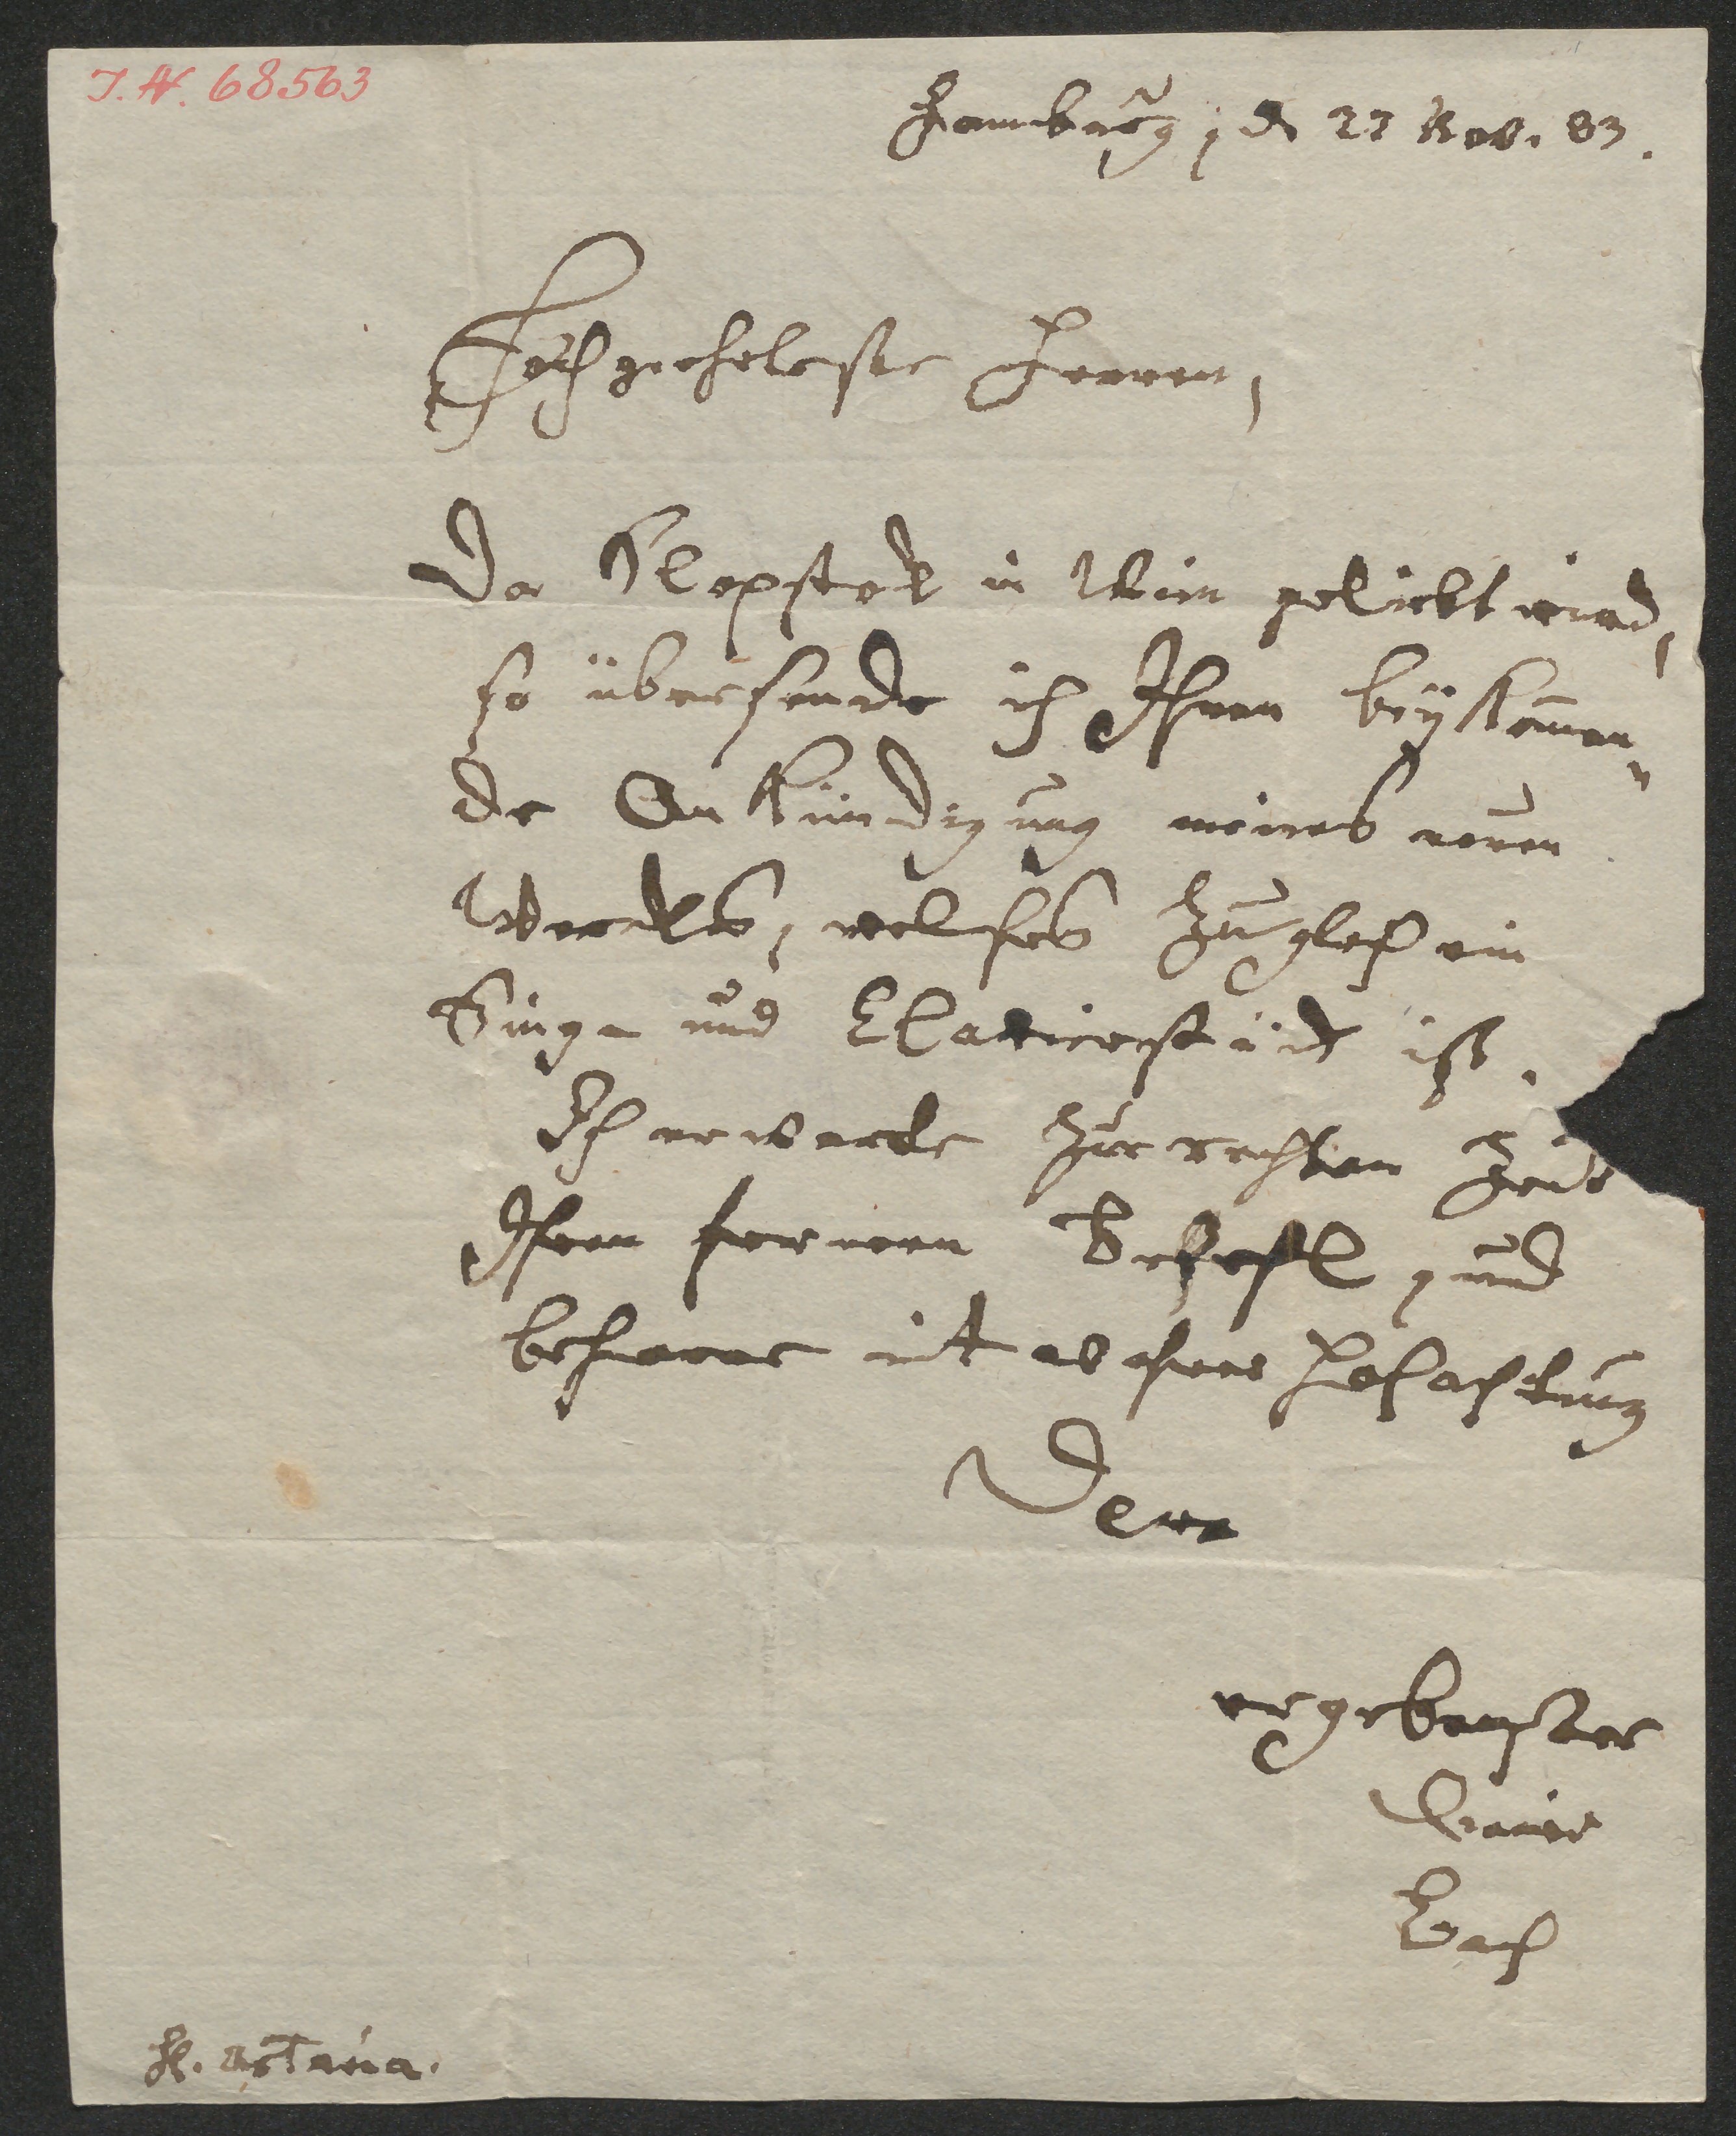 J. N. 68563
Hamburg, d. 27 Nov. 83.
Hochgeehrteste Herren,
Da Klopstok in Wien geliebt wird,
so übersende ich Ihnen beykommen=
de Ankündigung meines neuen
Werckes, welches zugleich ein
Singe und Clavierstück ist.
Ich erwarte zur rechten Zeit
Ihren fernern Befehl, und
beharre mit wahrer Hochachtung
Dero
ergebenster
Diener
Bach
H. Artaria.